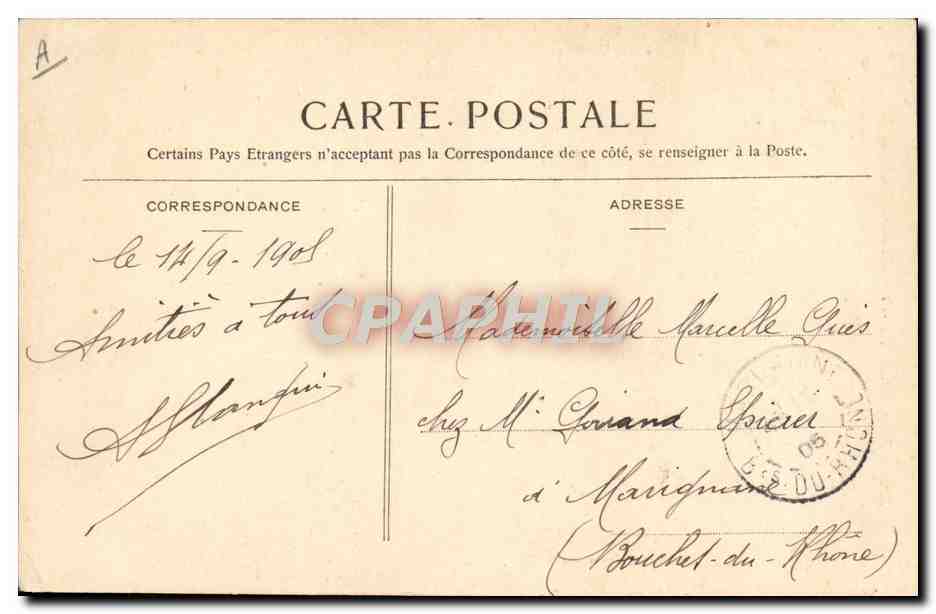 A
CARTE POSTALE
Certains Pays Etrangers n'acceptant pas la Correspondance de ce côté, se renseigner à la Poste.
CORRESPONDANCE
le 14/9 - 1905
Amitiés à tous
ADRESSE
Mademoiselle Marcelle
chez Mr Epicier
à Marignane
(Bouches-du-Rhône)
05
BES-DU-RHONE
CPAPHIL